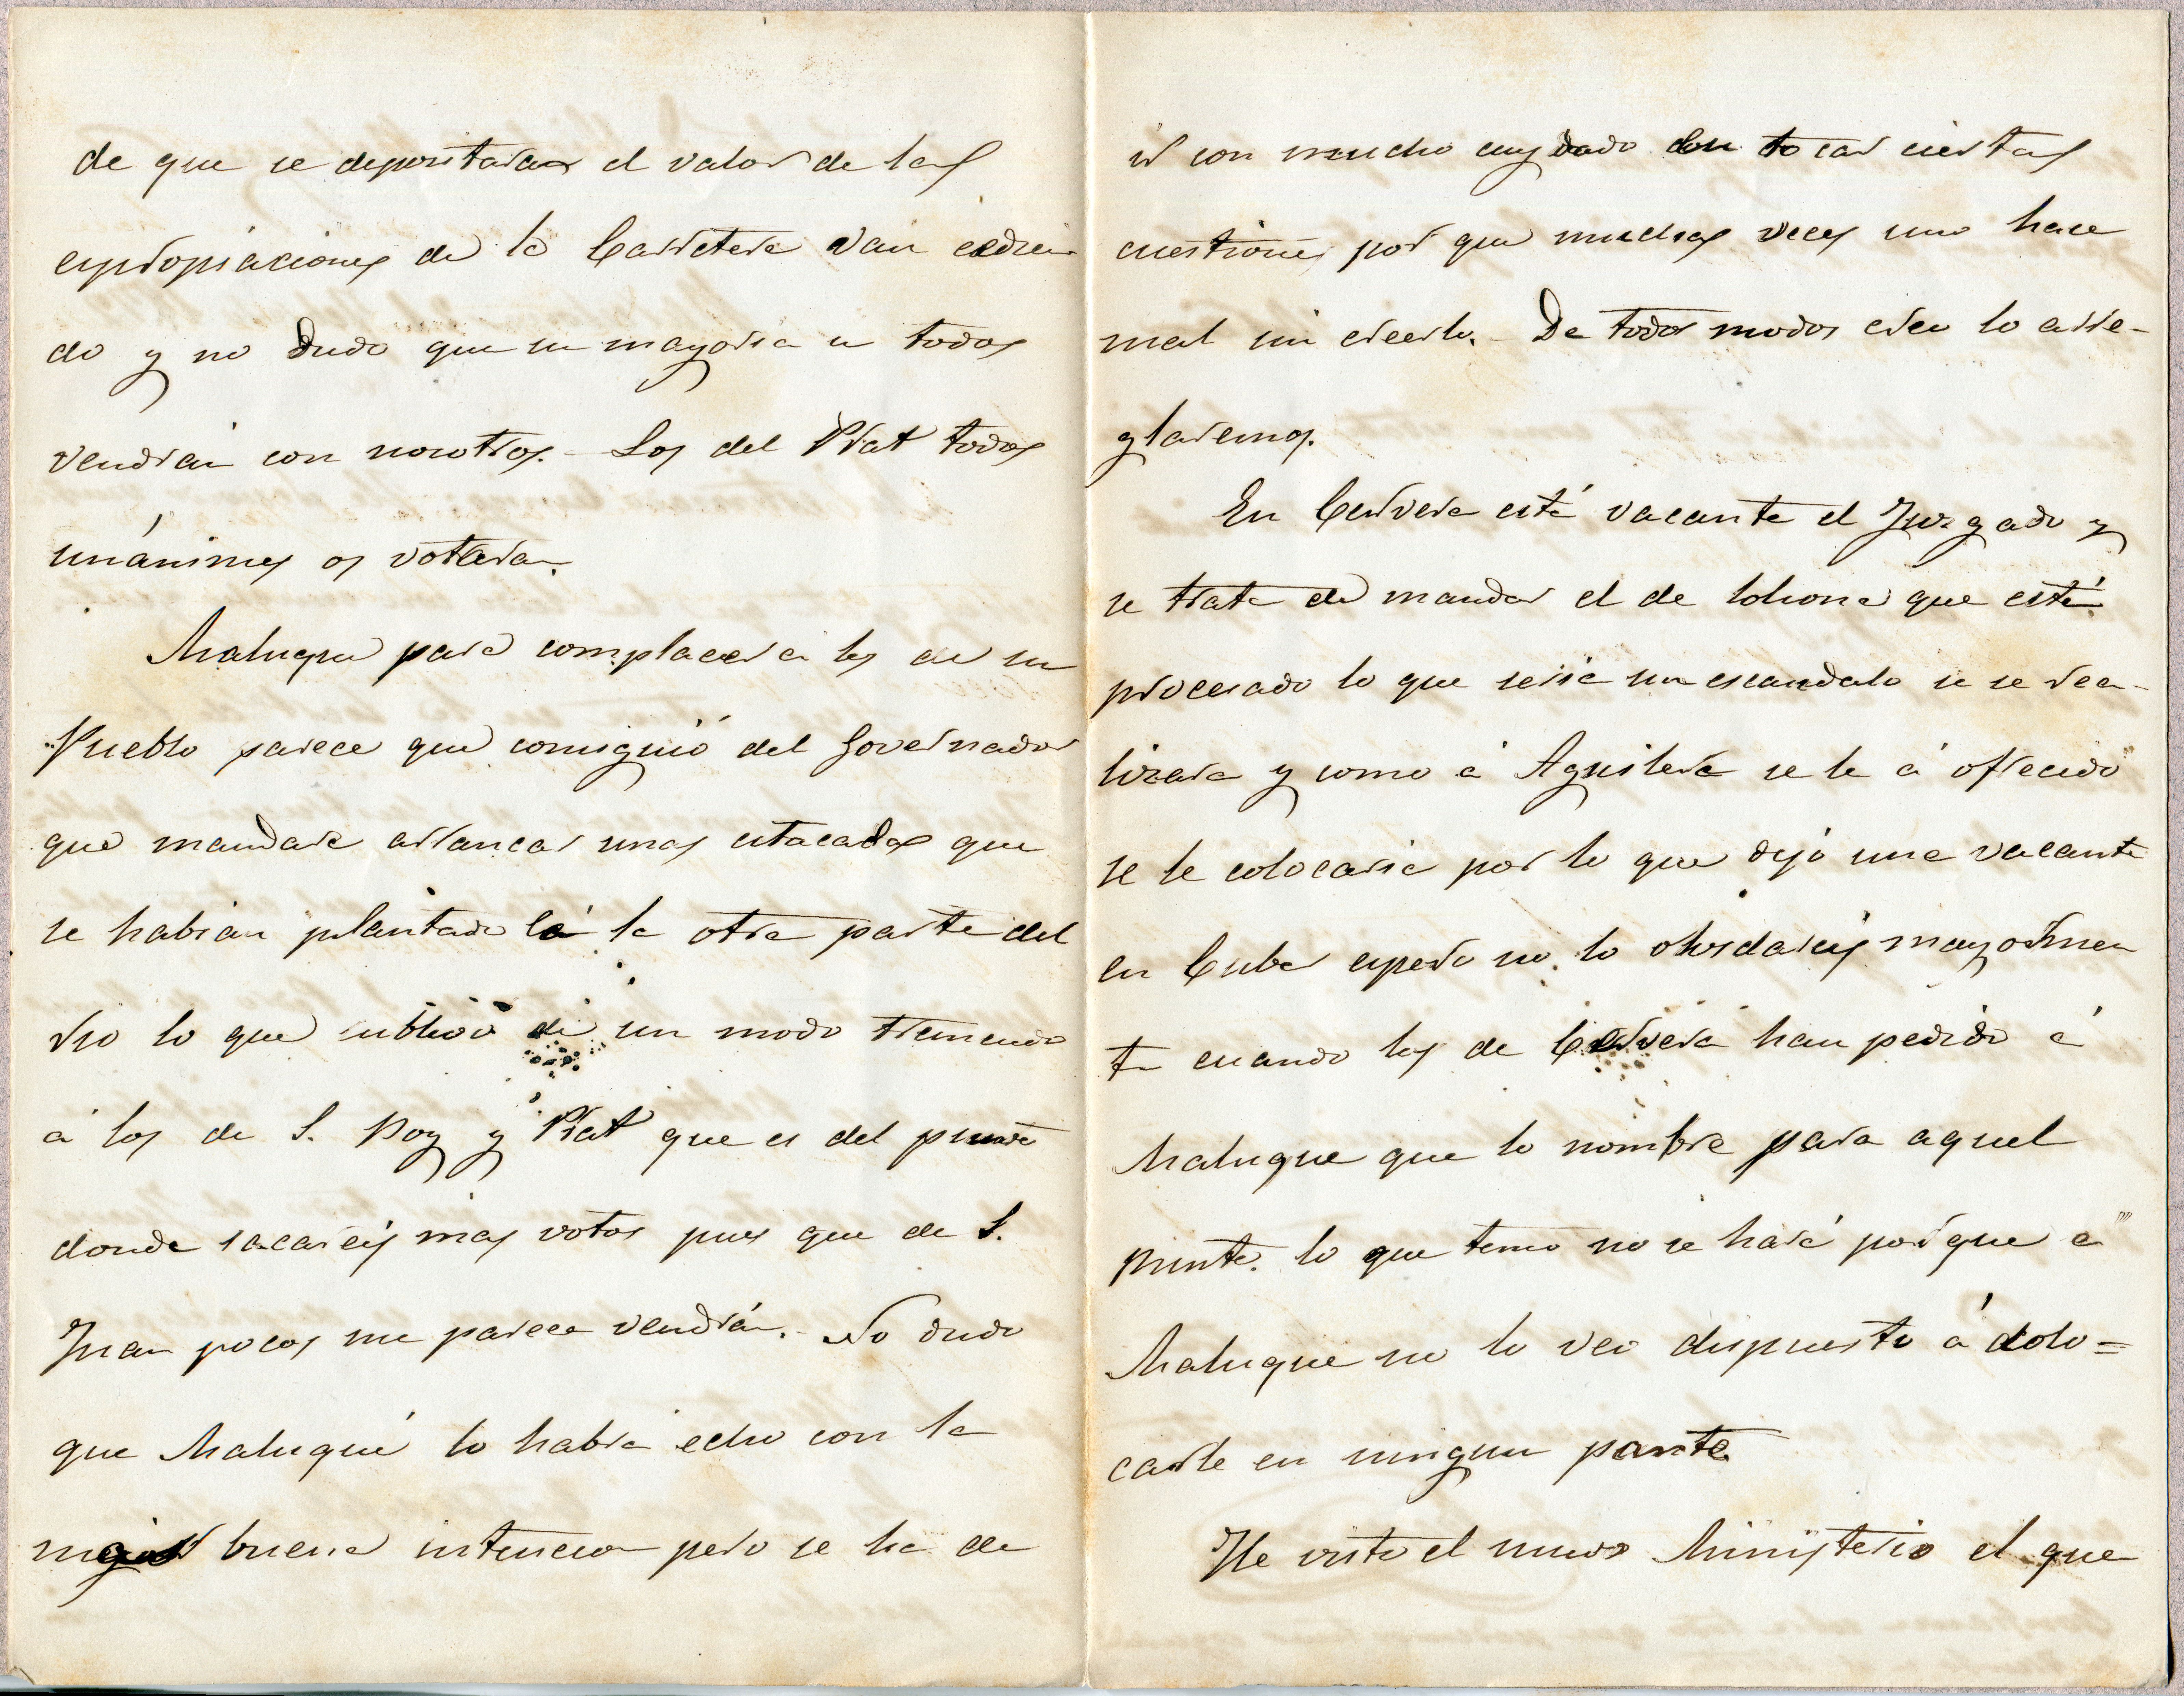 de que se depositaran el valor de las
expropiaciones de la Carretera van cedien
do y no dudo que su mayoria u todos
vendrán con nosotros. - Los del Prat todos
unánimes os votaran.
Maluquer para complacer a los de su
Pueblo parece que consiguió del Governador
que mandase arrancar unas estacadas que
se habian plantado á la otra parte del
rio lo que sublevó de un modo tremendo
á los de S. Boy y Prat que es del punto
donde sacareis mas votos pues que de S.
Juan pocos me parece vendrán. - No dudo
que Maluqué lo habra echo con la
mejor buena intencion pero se ha de
ir con mucho cuydado con tocar ciertas
cuestiones por que muchas veces uno hace
mal sin creerlo. - De todos modos creo lo arre-
glaremos.
En Cervera está vacante el Juzgado y
se trata de mandar el de Solsona que está
procesado lo que seria un escandalo si se rea-
lizara y como á Aguilera se le á ofrecido
se le colocaria por lo que dejó una vacante
en Cuba espero no lo olvidareis mayormen
te cuando los de Cervera han pedido á
Maluque que lo nombre para aquel
punto. lo que temo no se hará porque a
Maluque no lo veo dispuesto á colo=
carle en ningun parte
He visto el nuevo Ministerio el que